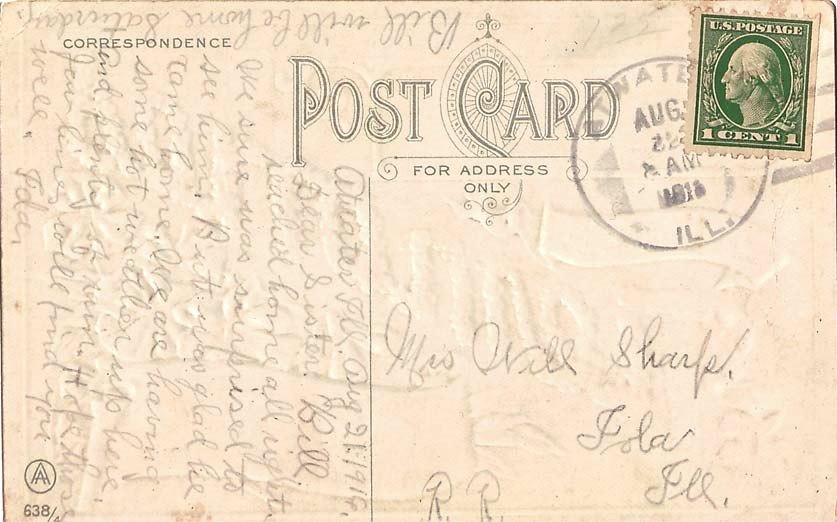 Bill will be home Saturday.
CORRESPONDENCE
POST CARD
FOR ADDRESS
ONLY
U.S. POSTAGE
1 CENT 1
AUG
22
AM
ILL.
Atwater Ill. Aug 21. 191
Dear Sister. Bill
reached home all right
We sure was surprised to
see him. But was glad he
came home. We are having
some hot weather up here.
and plenty of rain. Hope these
few lines will find you
well.
Ida.
Mrs Will Sharp.
Iola
Ill.
R. R.
AA
638/